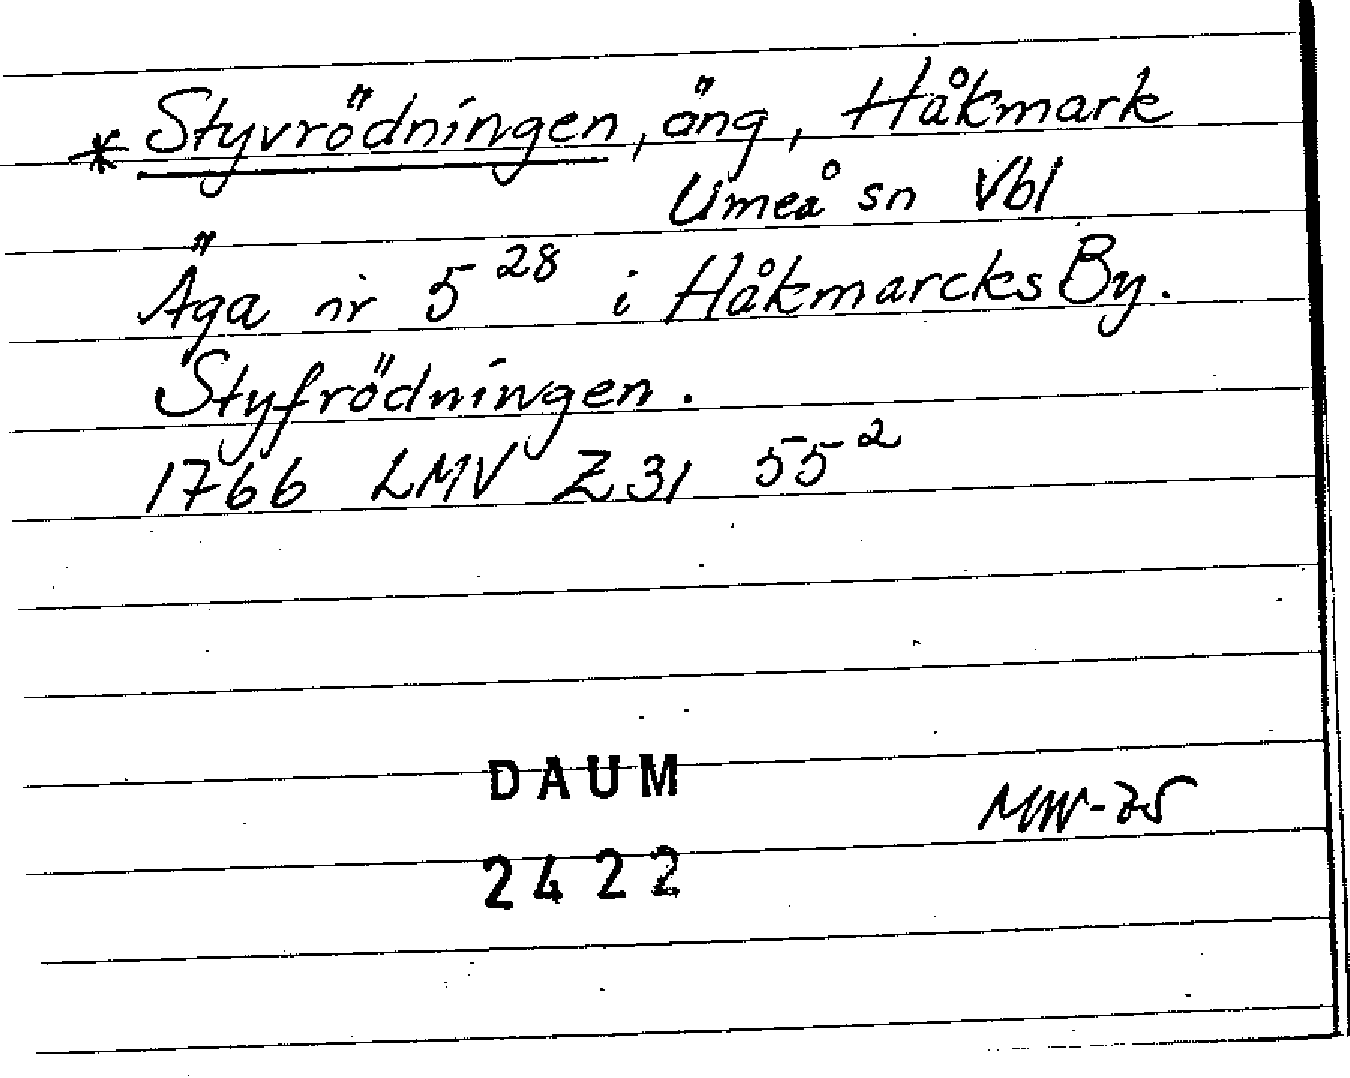 * Styvrödningen, äng, Håkmark
Umeå sn Vbl
Äga nr 5 28 i Håkmarcks By.
Styfrödningen.
1766 LMV Z31 55 2
DAUM
MW-75
2422